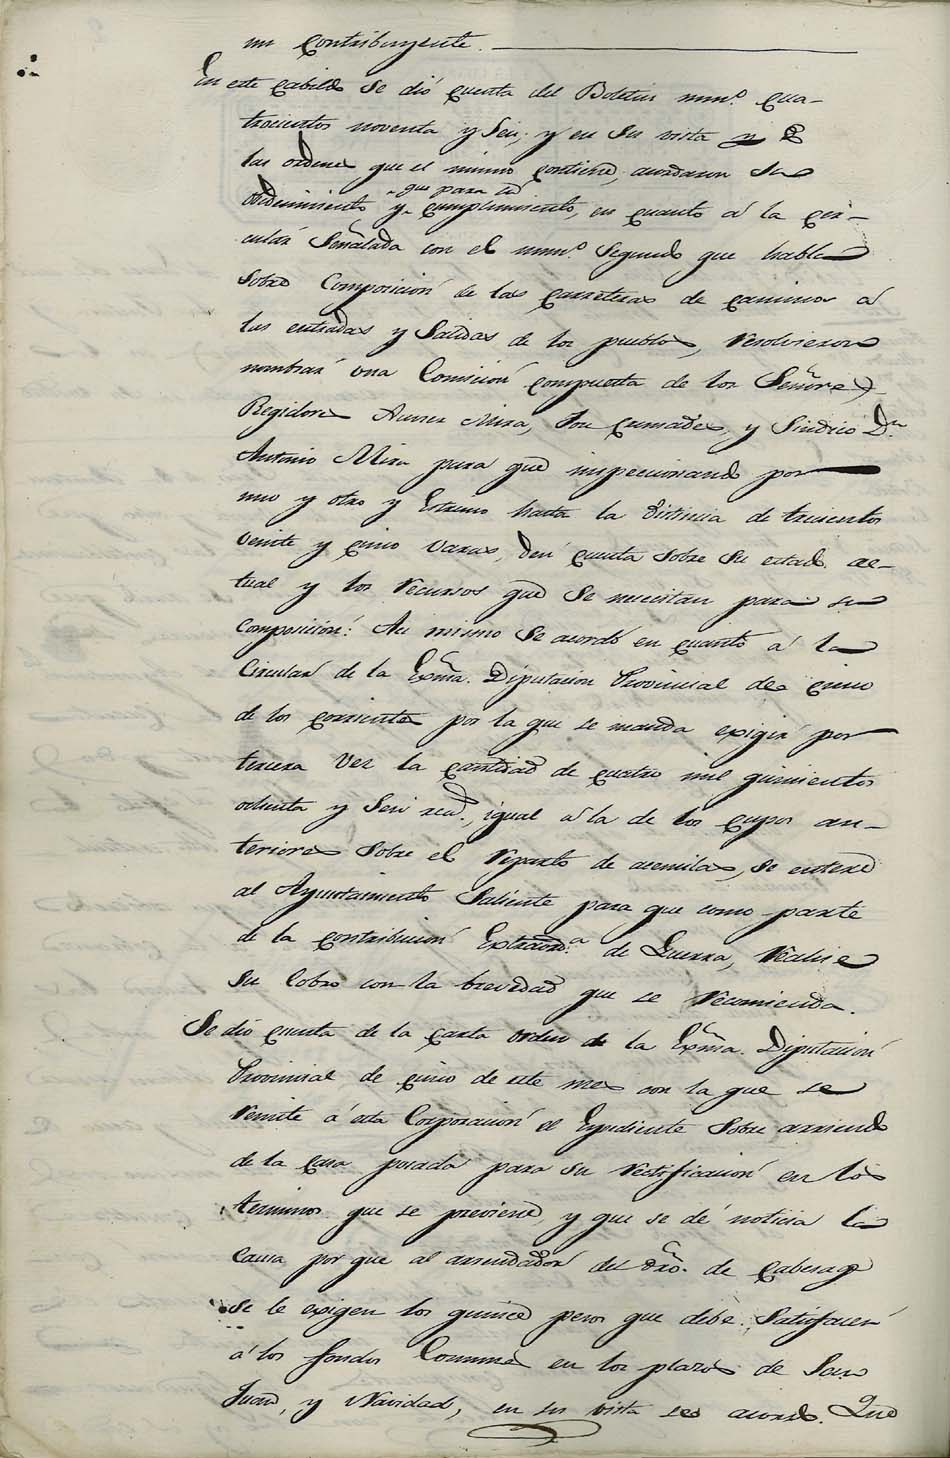 un contribuyente.
En este Cabildo se dió cuenta del Boletin num.º cua-
trocientos noventa y seis, y en su vista y de
las ordenes que el mismo contiene, acordaron su
obedecimiento y cumplimiento, en cuanto á la cir-
que para su
cular señalada con el num.º segundo que habla
sobre composicion de las carreteras de caminos á
las entradas y salidas de los pueblos, resolvieron
nombrar una Comision compuesta de los Señores
Regidores Mira, José y Sindico Dn.
Antonio Mira para que inspeccionando por
uno y otro y Estremo hasta la distancia de trecientas
veinte y cinco varas, den cuenta sobre su estado ac-
tual y los recursos que se necesitan para su
composicion: Asi mismo se acordó en cuanto á la
Circular de la Exma. Diputacion Provincial de cinco
de los corrientes por la que se manda exigir por
tercera vez la cantidad de cuatro mil quinientos
ochenta y seis rea.s, igual á la de los cupos an-
teriores sobre el reparto de acemilas, se entere
al Ayuntamiento saliente para que como parte
de la contribucion Extraord.ª de Guerra, realise
su cobro con la brevedad que se recomienda.
Se dió cuenta de la carta orden de la Exma. Diputacion
Provincial de cinco de este mes con la que se
remite á esta Corporacion el Espediente sobre arriendo
de la casa posada para su rectificacion en los
terminos que se previene, y que se dé noticia la
causa por que al arrendador del dro. de Cabesage
se le exigen los quince pesos que debe satisfacer
á los fondos Comunes en los plazos de San
Juan, y Navidad, en su vista se acordó. Que